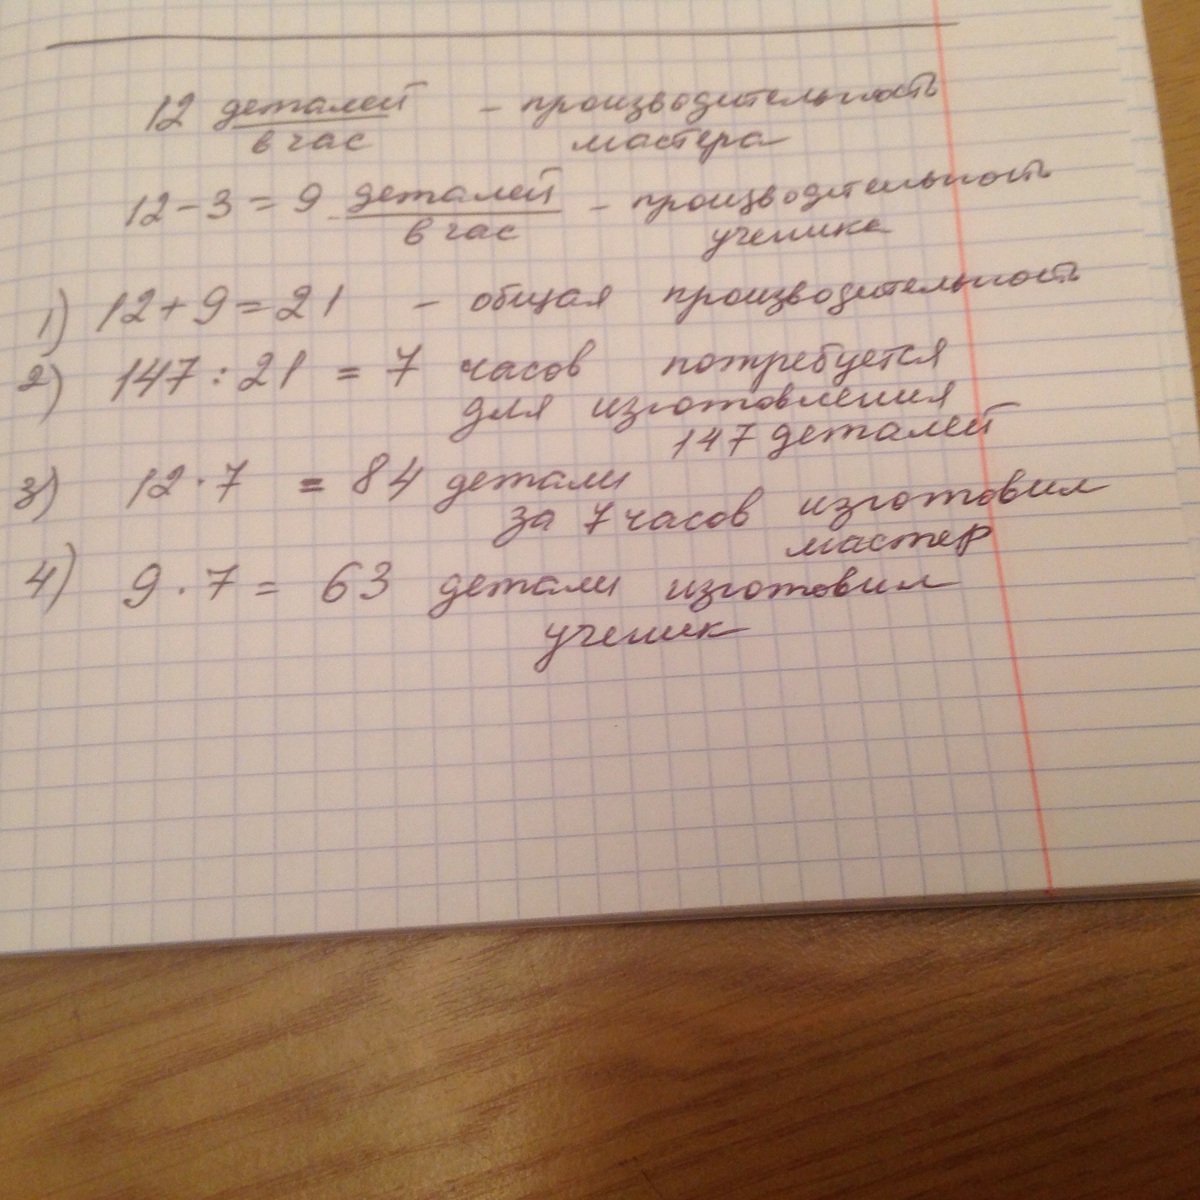 12 деталей - производительность
в час мастера
12 - 3 = 9 деталей - производительность
в час ученика
1) 12 + 9 = 21 - общая производительность
2) 147 : 21 = 7 часов потребуется
для изготовления
147 деталей
3) 12 · 7 = 84 детали
за 7 часов изготовил
мастер
4) 9 · 7 = 63 детали изготовил
ученик